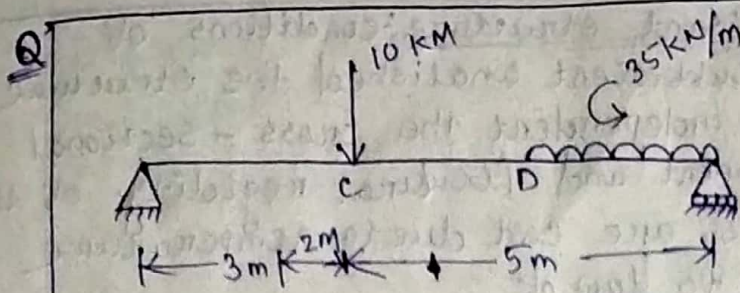 Q
10 KM
35KN/m
C
D
3m
2m
5m